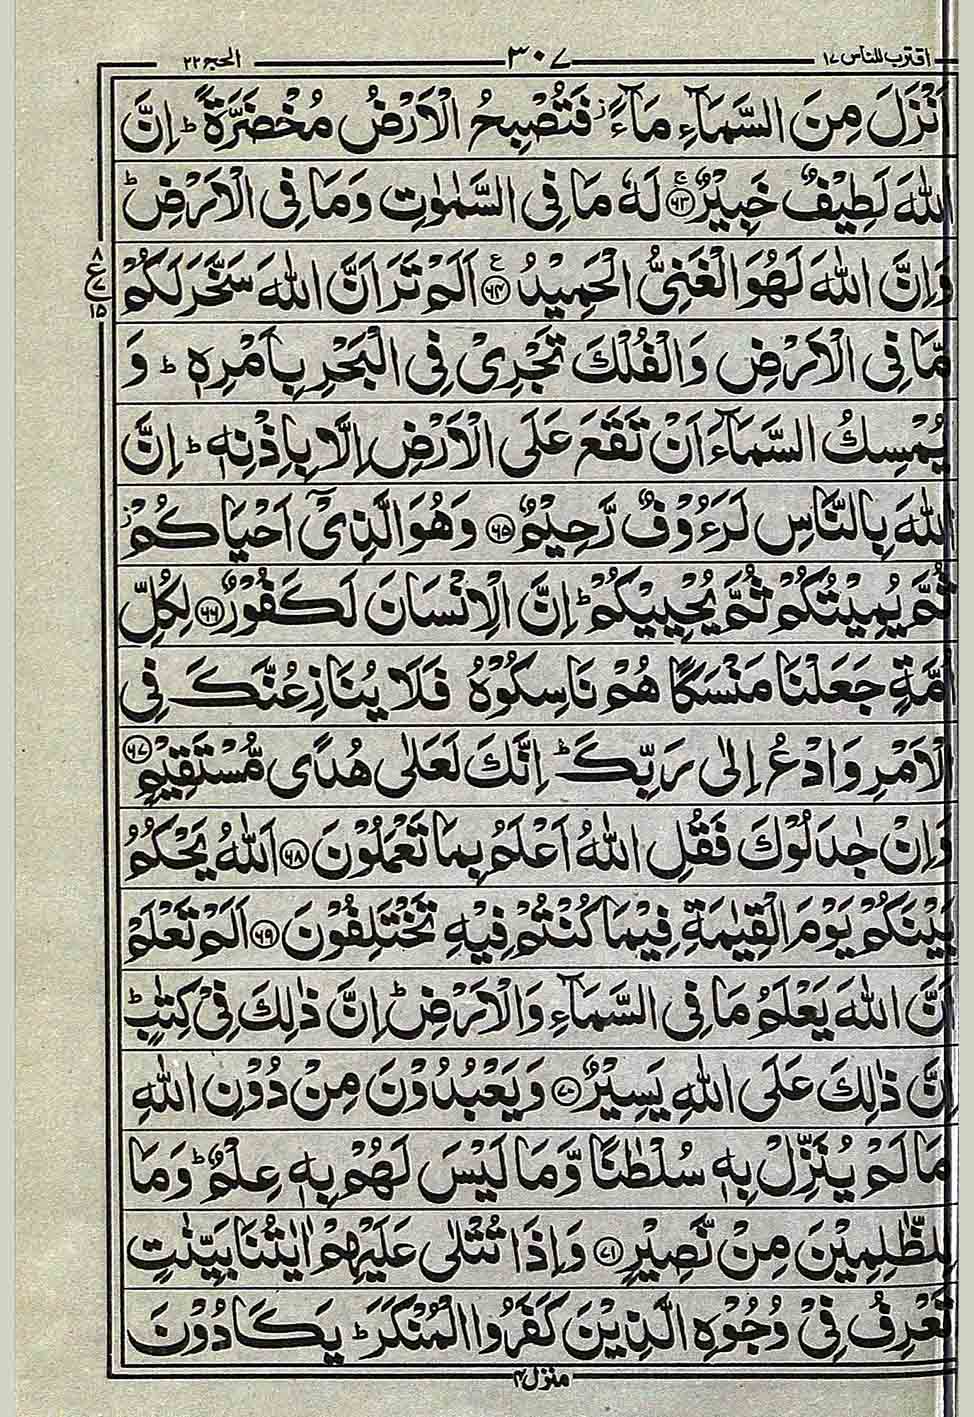 اقترب للناس ١٧ ٣٠٧ الحج ٢٢
اَنْزَلَ مِنَ السَّمَآءِ مَآءً ز فَتُصْبِحُ الْاَرْضُ مُخْضَرَّةً ؕ اِنَّ
اللّٰهَ لَطِيْفٌ خَبِيْرٌ ﴿۶۳﴾ۚ لَهٗ مَا فِی السَّمٰوٰتِ وَمَا فِی الْاَرْضِ ؕ
وَاِنَّ اللّٰهَ لَهُوَ الْغَنِیُّ الْحَمِيْدُ ﴿۶۴﴾ ع اَلَمْ تَرَ اَنَّ اللّٰهَ سَخَّرَ لَكُمْ
٨ ع ٧ ١٥
مَّا فِی الْاَرْضِ وَالْفُلْكَ تَجْرِیْ فِی الْبَحْرِ بِاَمْرِهٖ ؕ وَ
يُمْسِكُ السَّمَآءَ اَنْ تَقَعَ عَلَی الْاَرْضِ اِلَّا بِاِذْنِهٖ ؕ اِنَّ
اللّٰهَ بِالنَّاسِ لَرَءُوْفٌ رَّحِيْمٌ ﴿۶۵﴾ وَهُوَ الَّذِیْۤ اَحْيَاكُمْ ز
ثُمَّ يُمِيْتُكُمْ ثُمَّ يُحْيِيْكُمْ ؕ اِنَّ الْاِنْسَانَ لَكَفُوْرٌ ﴿۶۶﴾ لِكُلِّ
اُمَّةٍ جَعَلْنَا مَنْسَكًا هُمْ نَاسِكُوْهُ فَلَا يُنَازِعُنَّكَ فِی
الْاَمْرِ وَادْعُ اِلٰی رَبِّكَ ؕ اِنَّكَ لَعَلٰی هُدًی مُّسْتَقِيْمٍ ﴿۶۷﴾
وَاِنْ جٰدَلُوْكَ فَقُلِ اللّٰهُ اَعْلَمُ بِمَا تَعْمَلُوْنَ ﴿۶۸﴾ اَللّٰهُ يَحْكُمُ
بَيْنَكُمْ يَوْمَ الْقِيٰمَةِ فِيْمَا كُنْتُمْ فِيْهِ تَخْتَلِفُوْنَ ﴿۶۹﴾ اَلَمْ تَعْلَمْ
اَنَّ اللّٰهَ يَعْلَمُ مَا فِی السَّمَآءِ وَالْاَرْضِ ؕ اِنَّ ذٰلِكَ فِیْ كِتٰبٍ ؕ
اِنَّ ذٰلِكَ عَلَی اللّٰهِ يَسِيْرٌ ﴿۷۰﴾ وَيَعْبُدُوْنَ مِنْ دُوْنِ اللّٰهِ
مَا لَمْ يُنَزِّلْ بِهٖ سُلْطٰنًا وَّمَا لَيْسَ لَهُمْ بِهٖ عِلْمٌ ؕ وَمَا
لِلظّٰلِمِيْنَ مِنْ نَّصِيْرٍ ﴿۷۱﴾ وَاِذَا تُتْلٰی عَلَيْهِمْ اٰيٰتُنَا بَيِّنٰتٍ
تَعْرِفُ فِیْ وُجُوْهِ الَّذِيْنَ كَفَرُوا الْمُنْكَرَ ؕ يَكَادُوْنَ
منزل ۴